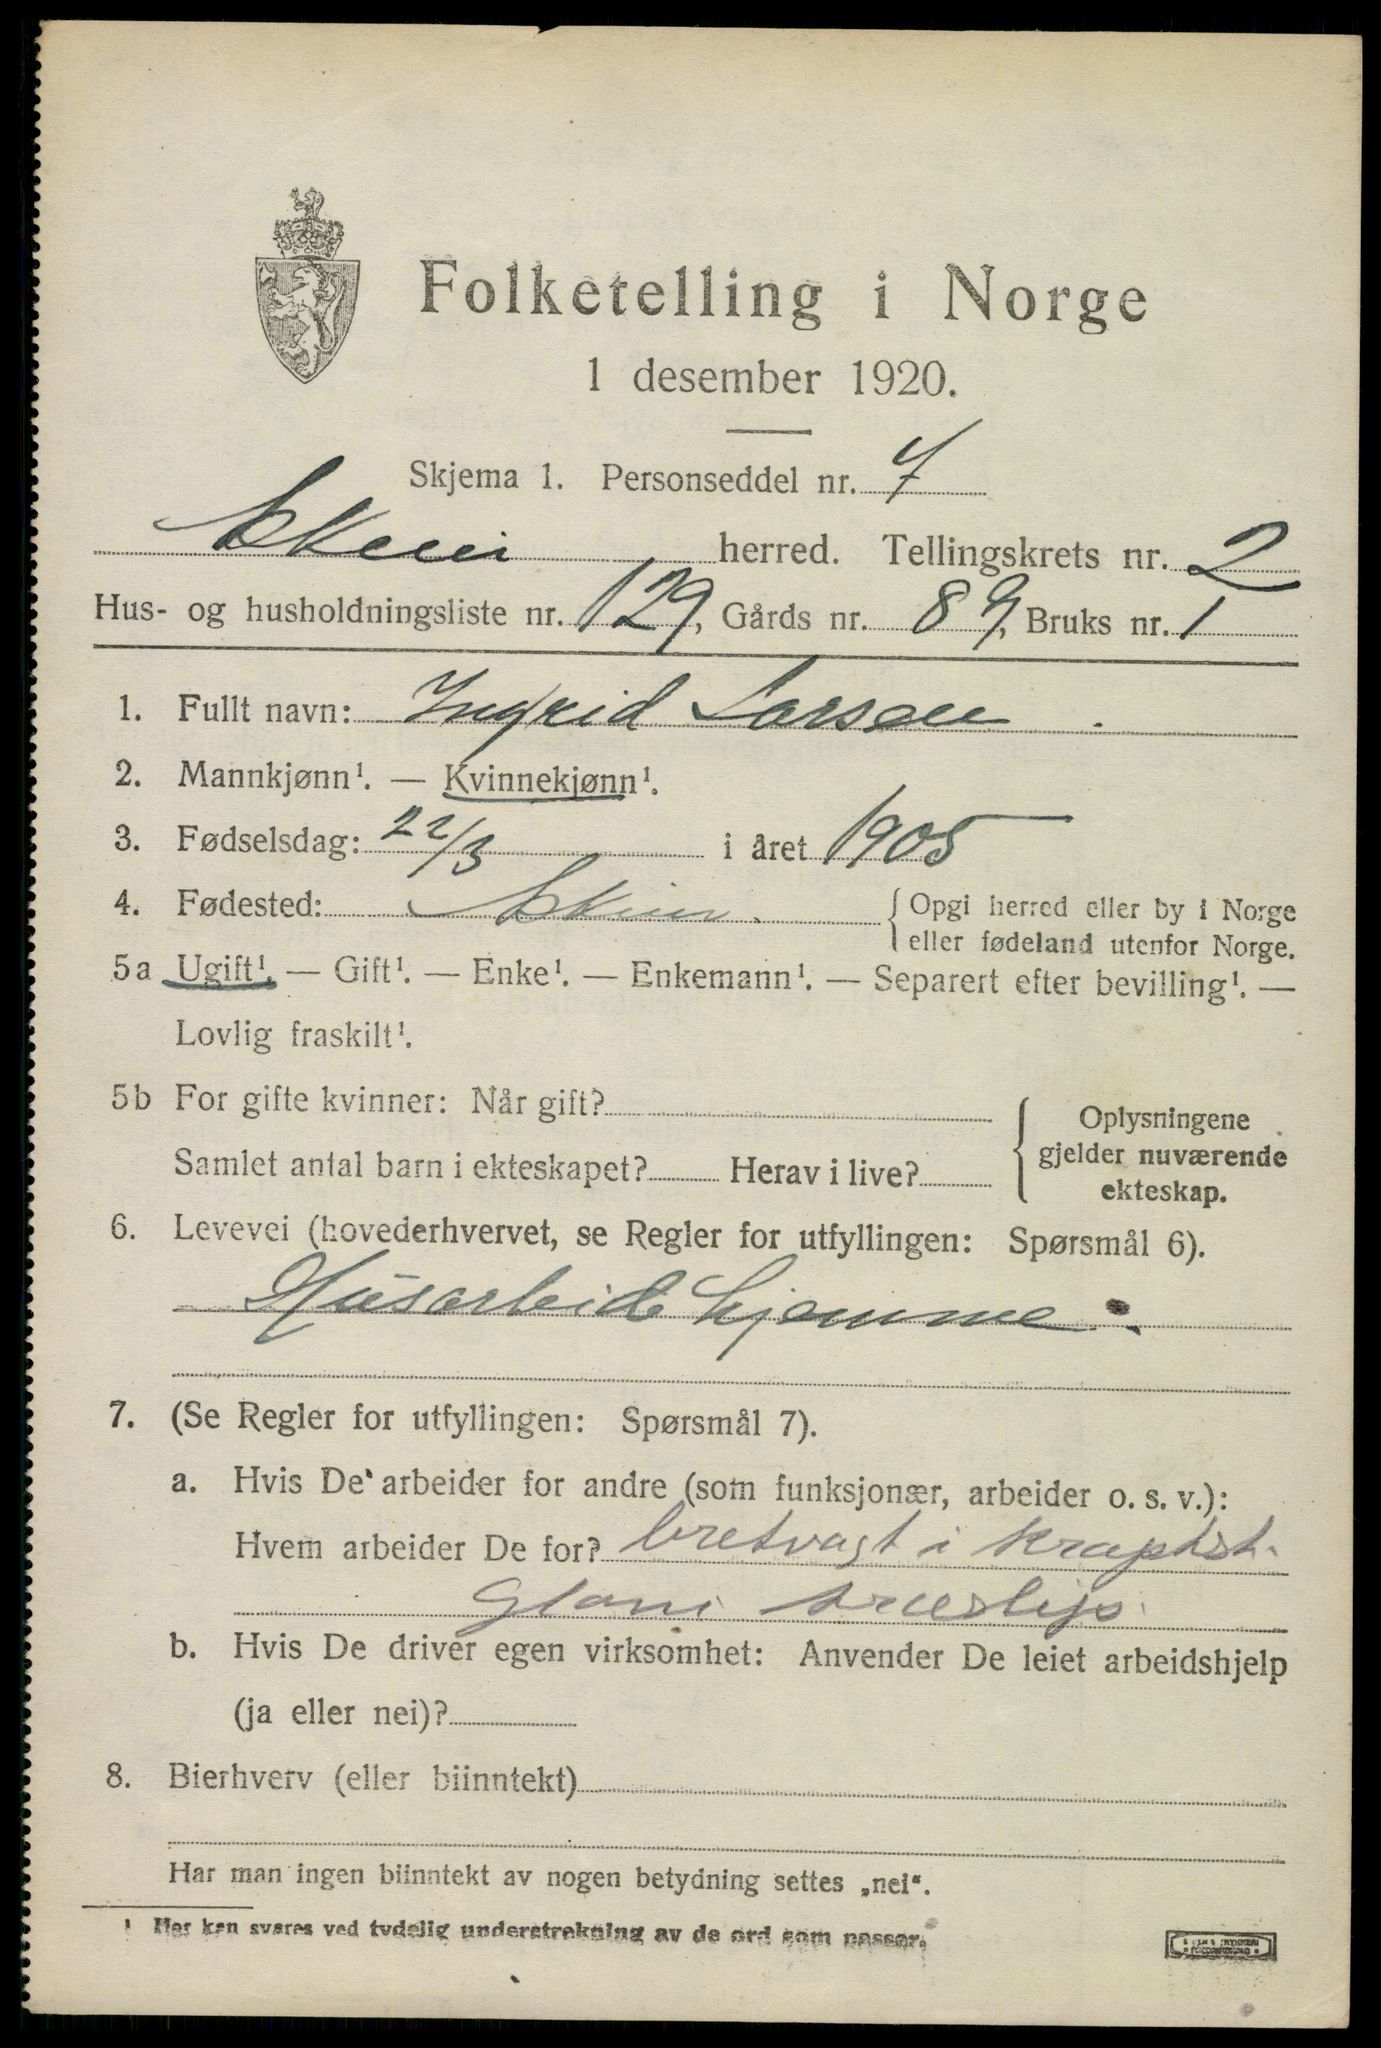 Folketelling i Norge
1 desember 1920.
Skjema 1. Personseddel nr. 7
herred. Tellingskrets nr. 2
Hus- og husholdningsliste nr. 129, Gårds nr. 89, Bruks nr. 1
1. Fullt navn: Ingrid Larsen
2. Mannkjønn¹. — Kvinnekjønn¹.
3. Fødselsdag: 22/3 i året 1905
4. Fødested: { Opgi herred eller by i Norge
eller fødeland utenfor Norge.
5a Ugift¹. — Gift¹. — Enke¹. — Enkemann¹. — Separert efter bevilling¹. —
Lovlig fraskilt¹.
5b For gifte kvinner: Når gift?
Samlet antal barn i ekteskapet? Herav i live?
{ Oplysningene
gjelder nuværende
ekteskap.
6. Levevei (hovederhvervet, se Regler for utfyllingen: Spørsmål 6).
Husarbeide hjemme.
7. (Se Regler for utfyllingen: Spørsmål 7).
a. Hvis De arbeider for andre (som funksjonær, arbeider o. s. v.):
Hvem arbeider De for? i
b. Hvis De driver egen virksomhet: Anvender De leiet arbeidshjelp
(ja eller nei)?
8. Bierhverv (eller biinntekt)
Har man ingen biinntekt av nogen betydning settes „nei“.
¹ Her kan svares ved tydelig understrekning av de ord som passer.